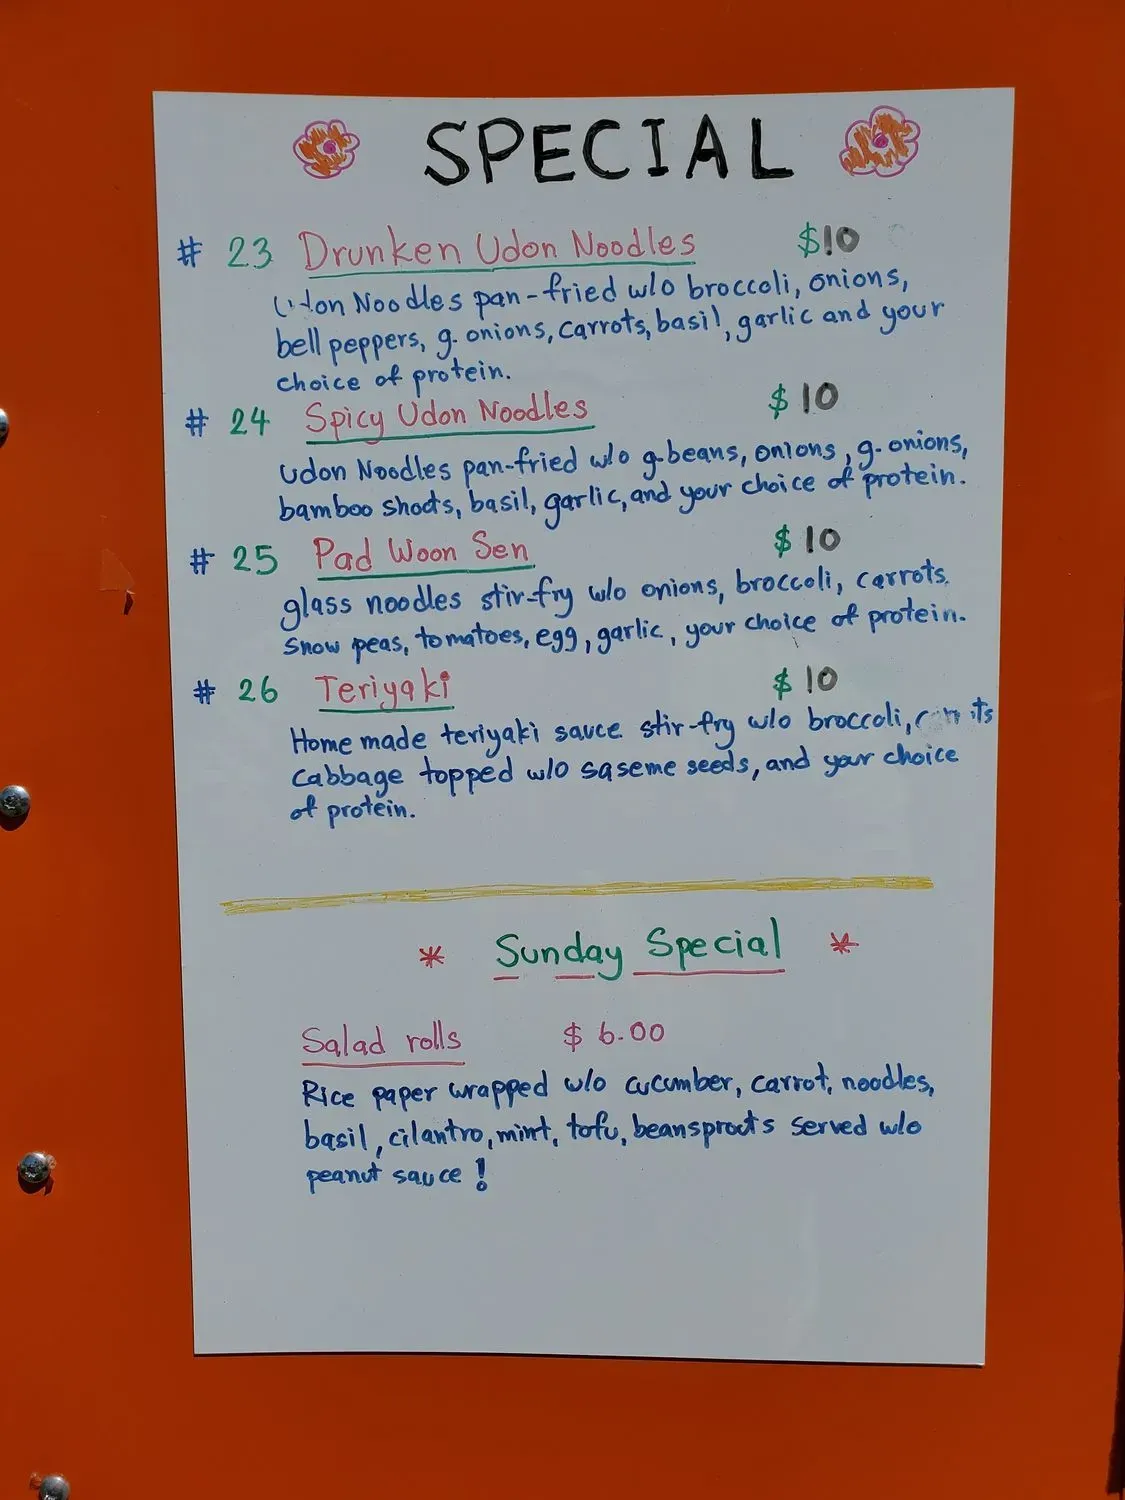 SPECIAL
# 23 Drunken Udon Noodles $10
Udon Noodles pan-fried w/o broccoli, onions,
bell peppers, g. onions, carrots, basil, garlic and your
choice of protein.
# 24 Spicy Udon Noodles $10
Udon Noodles pan-fried w/o g-beans, onions, g. onions,
bamboo shoots, basil, garlic, and your choice of protein.
# 25 Pad Woon Sen $10
glass noodles stir-fry w/o onions, broccoli, carrots.
Snow peas, tomatoes, egg, garlic, your choice of protein.
# 26 Teriyaki $10
Home made teriyaki sauce stir-fry w/o broccoli, carrots
cabbage topped w/o saseme seeds, and your choice
of protein.
* Sunday Special *
Salad rolls $ 6.00
Rice paper wrapped w/o cucumber, carrot, noodles,
basil, cilantro, mint, tofu, beansprouts served w/o
peanut sauce!